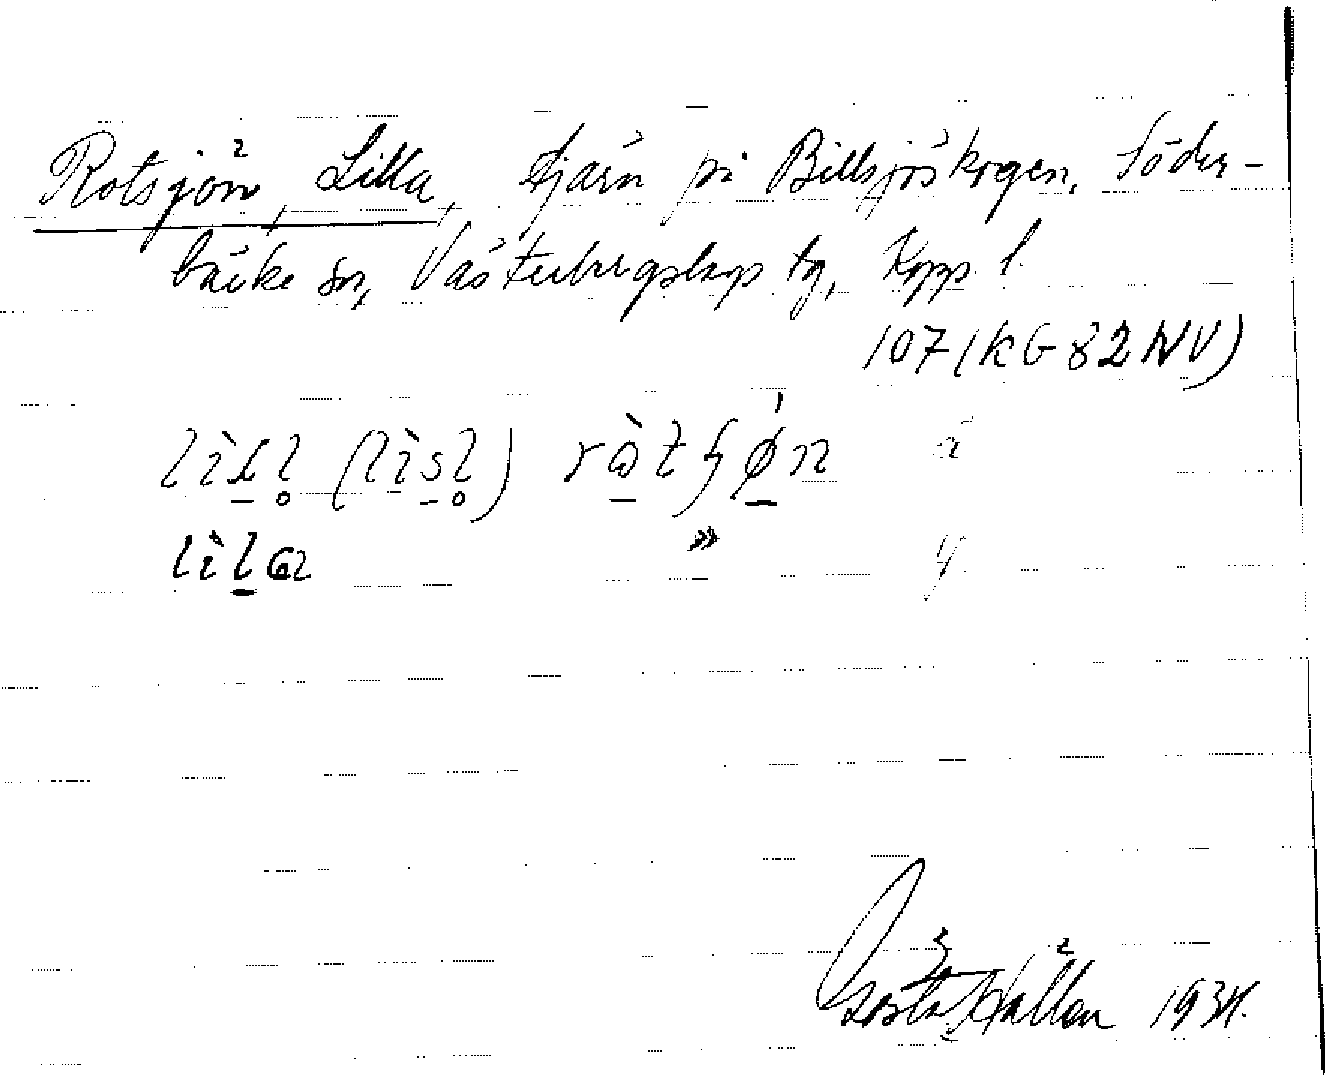 Rotsjön, Lilla, tjärn på Billsjöskogen, Söder-
bärke sn, Västerbergslags tg, Kopp. l.
107 (KG 82 NV)
lìsl̥ (lìsl̥) ròtʃøn ä
lìla » y
Gösta Källen 1934.